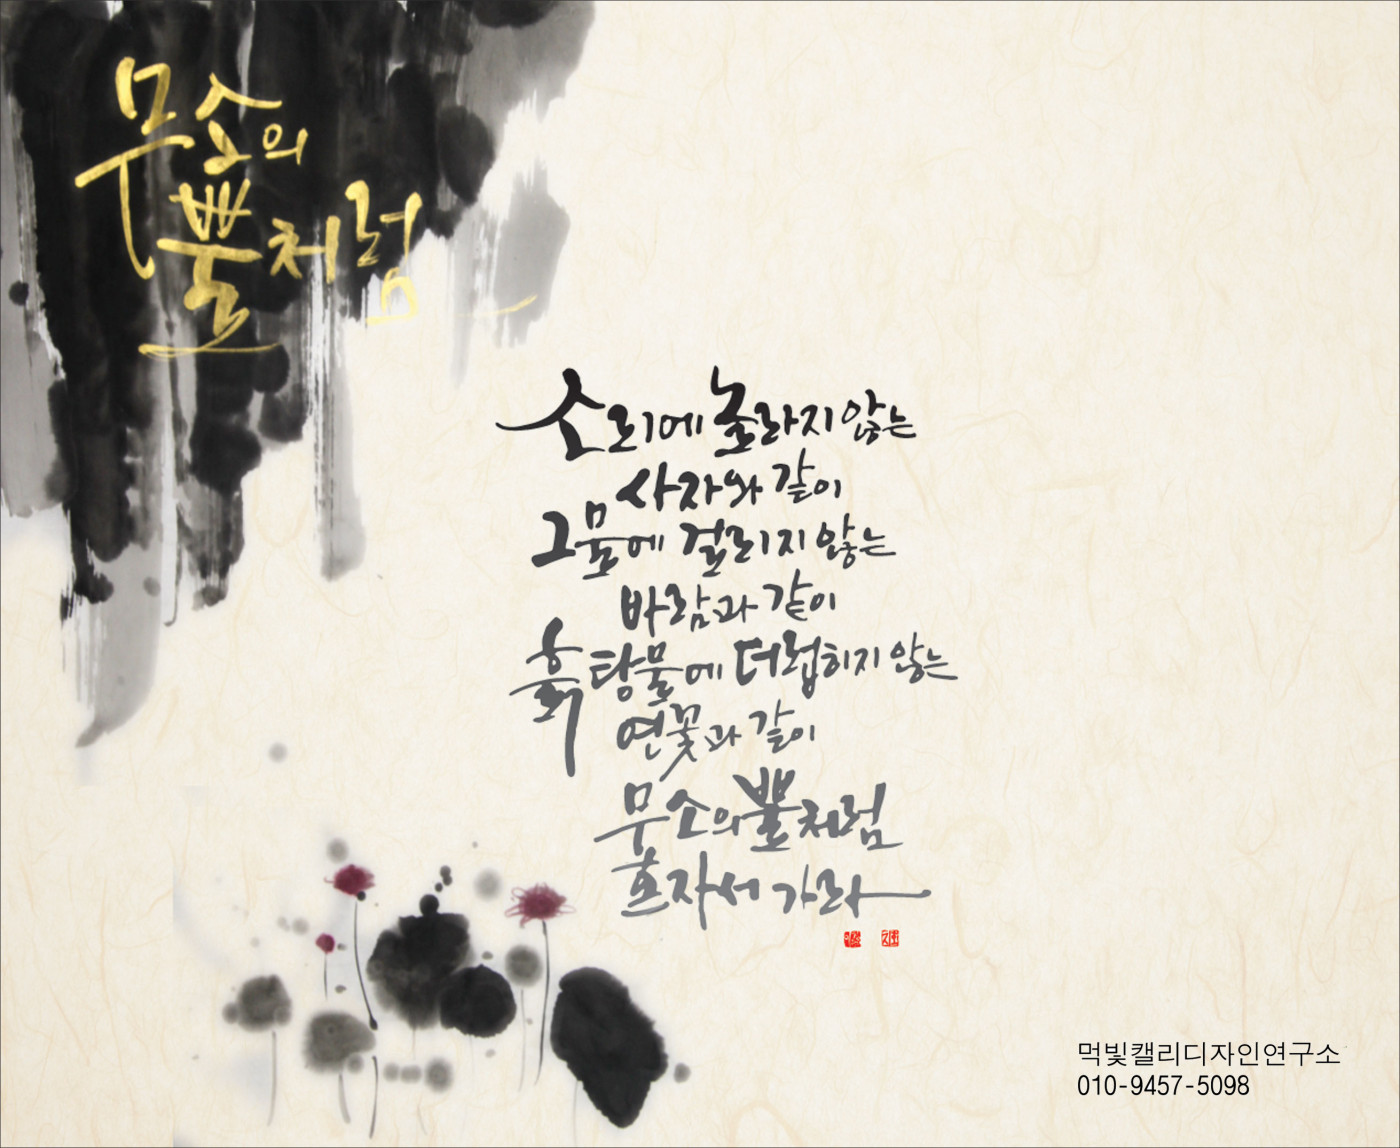 무소의
뿔처럼
소리에 놀라지 않는
사자와 같이
그물에 걸리지 않는
바람과 같이
흙탕물에 더럽히지 않는
연꽃과 같이
무소의 뿔처럼
혼자서 가라
먹빛캘리디자인연구소
010-9457-5098